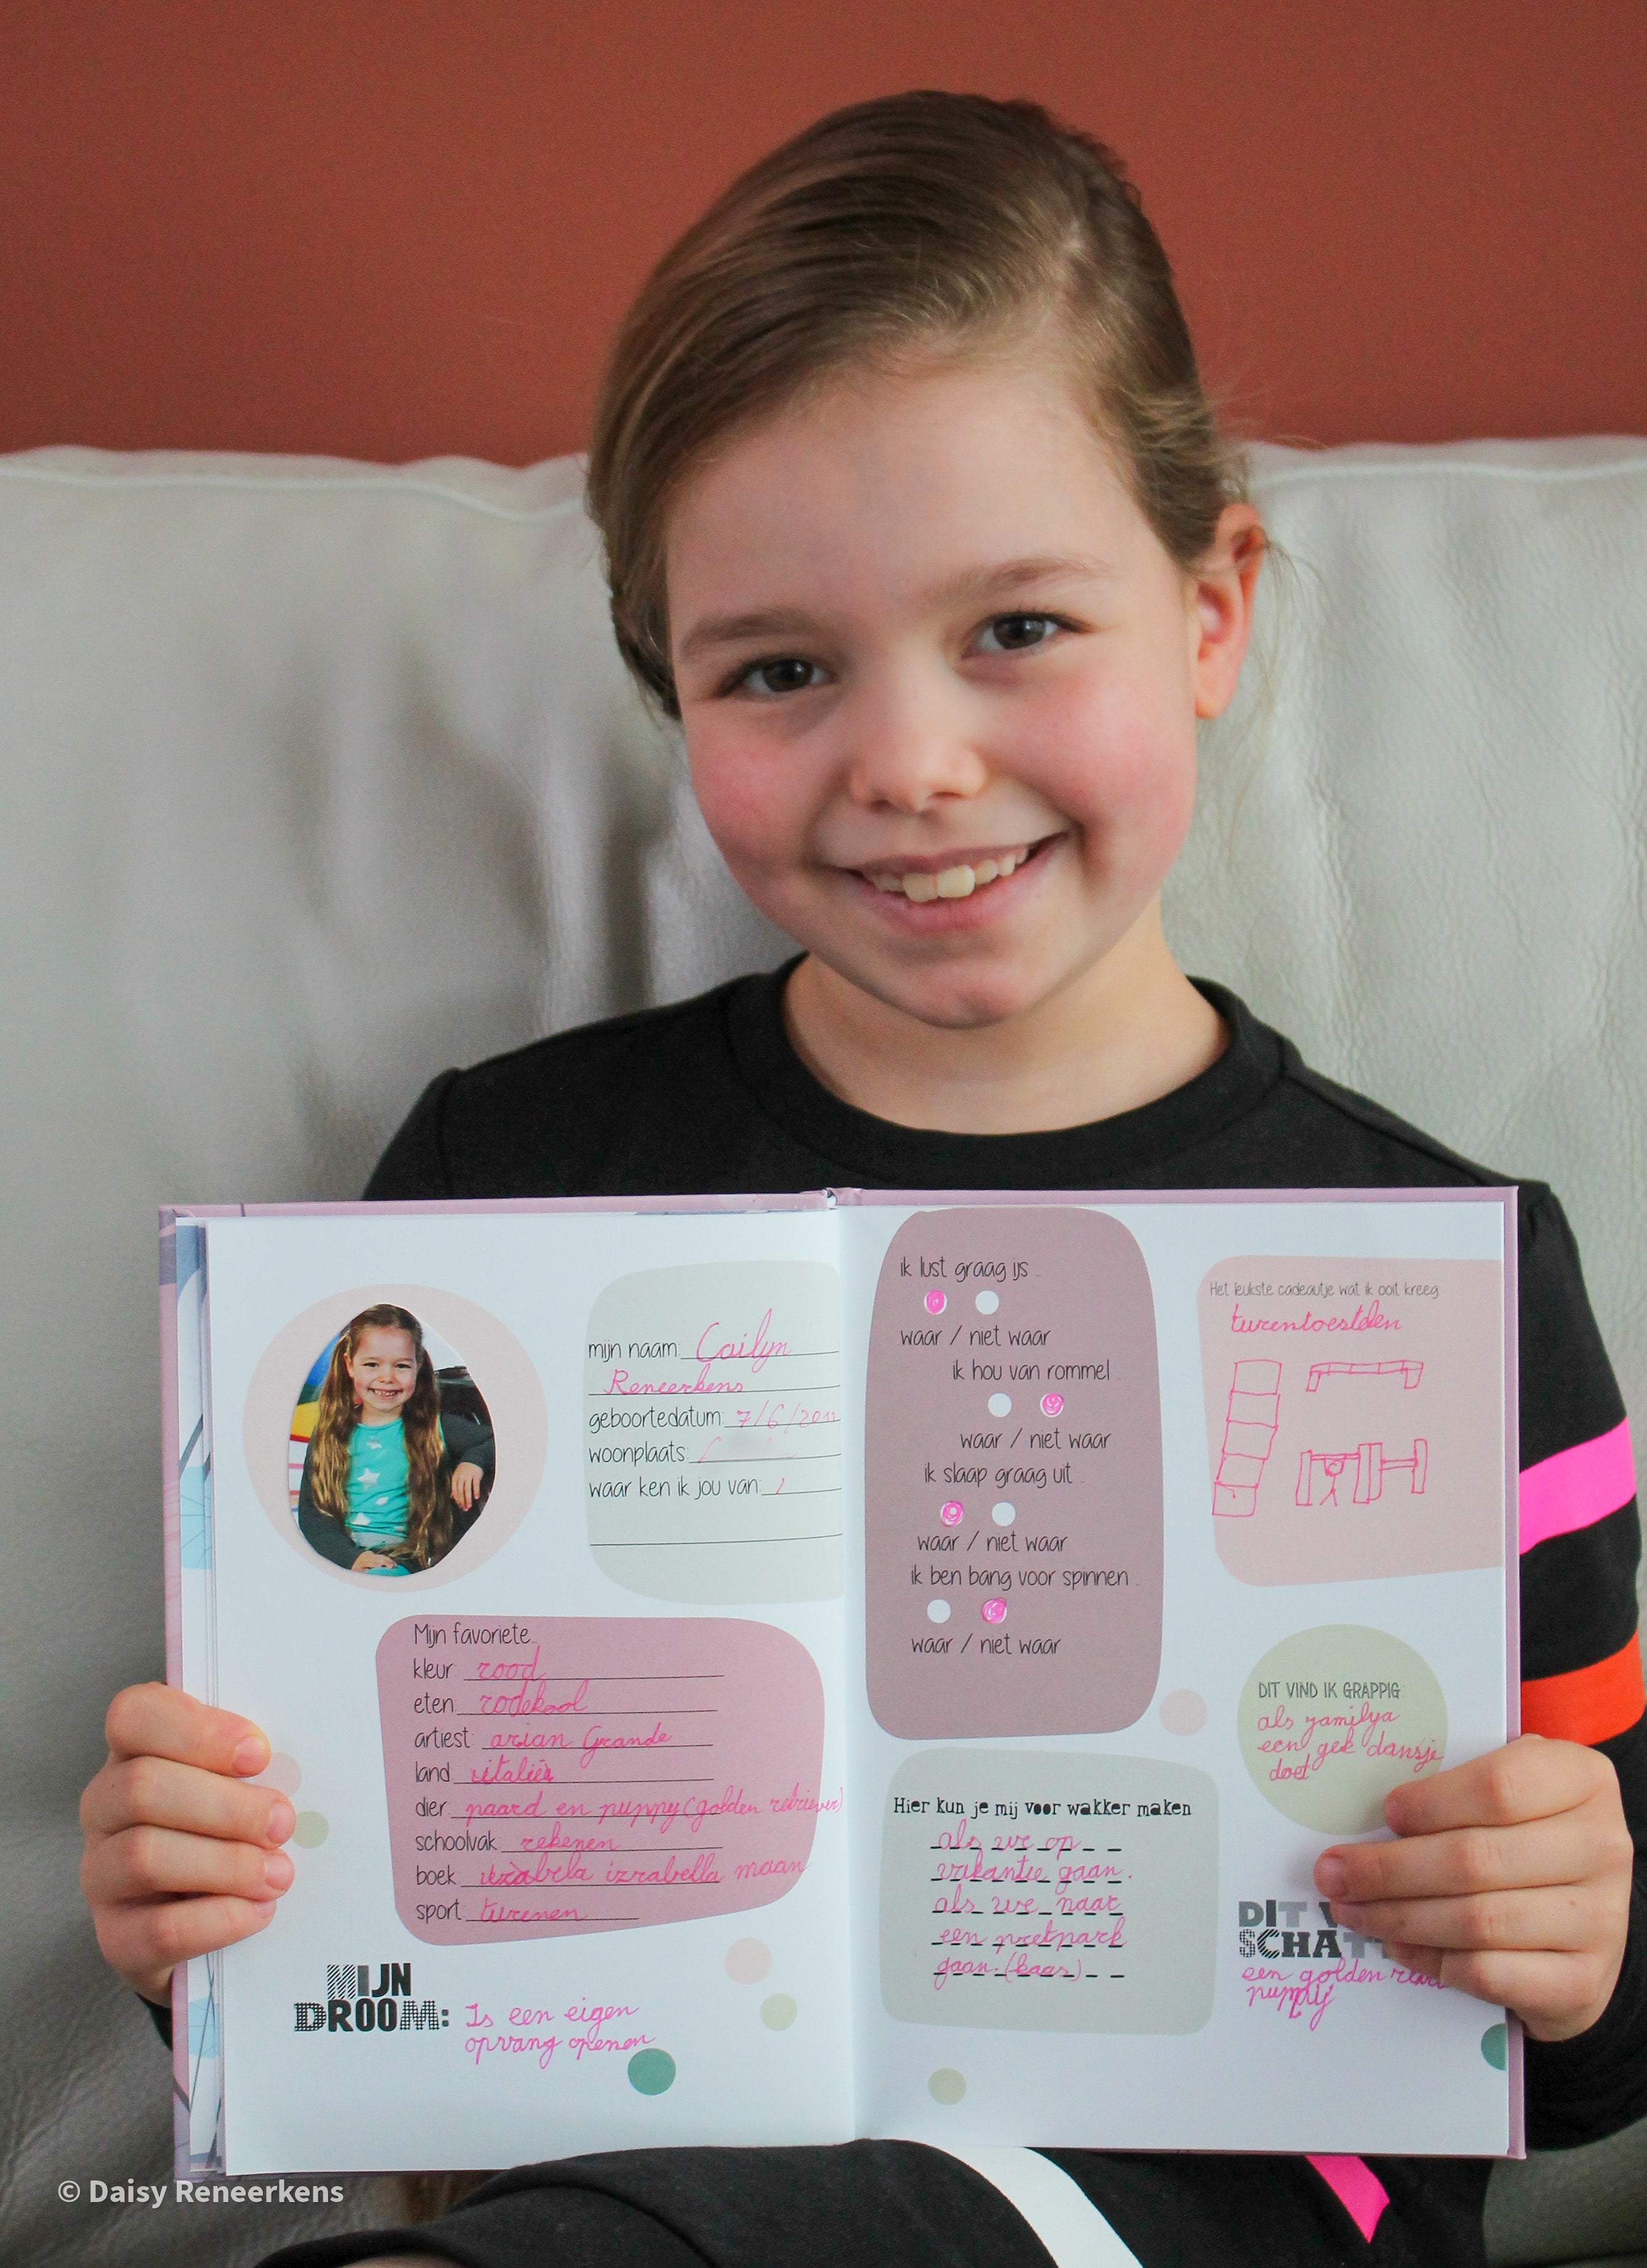 mijn naam: Cailyn
Reneerkens
geboortedatum: 7/6/2011
woonplaats:
waar ken ik jou van:
Mijn favoriete...
kleur: rood
eten: rodekool
artiest: arian Grande
land: italië
dier: paard en puppy (golden retriever)
schoolvak: rekenen
boek: izrabella maan
sport: turenen
MIJN
DROOM: Is een eigen
opvang openen
ik lust graag ijs...
waar / niet waar
ik hou van rommel...
waar / niet waar
ik slaap graag uit...
waar / niet waar
ik ben bang voor spinnen...
waar / niet waar
Hier kun je mij voor wakker maken
als we op
vakantie gaan.
als we naar
een pretpark
gaan. (kaas)
Het leukste cadeautje wat ik ooit kreeg:
turentoestelen
DIT VIND IK GRAPPIG:
als yamilya
een gek dansje
doet
DIT
SCHAT
een golden
puppy
© Daisy Reneerkens